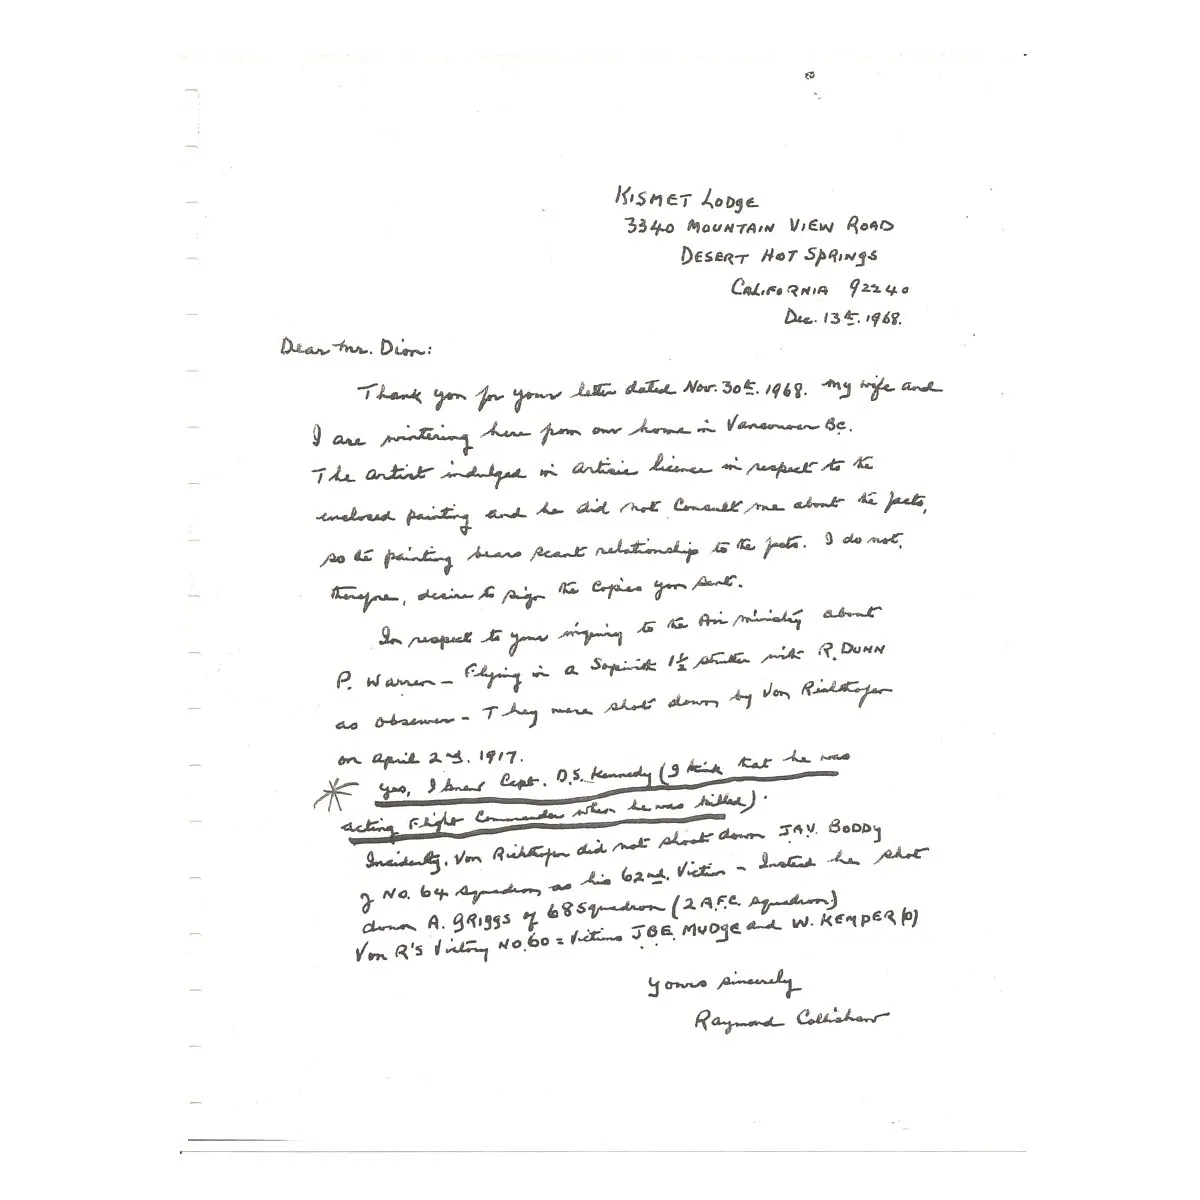 KISMET LODGE
3340 MOUNTAIN VIEW ROAD
DESERT HOT SPRINGS
CALIFORNIA 92240
Dec. 13th. 1968.
Dear Mr. Dion:
Thank you for your letter dated Nov. 30th. 1968. My wife and
I are wintering here from our home in Vancouver BC.
The artist indulged in artisic licence in respect to the
enclosed painting and he did not consult me about the facts,
so the painting bears scant relationship to the facts. I do not,
therefore, desire to sign the copies you sent.
In respect to your inquiry to the Air Ministry about
P. Warren – Flying in a Sopwith 1½ strutter with R. DUNN
as observer – They were shot down by Von Richthofen
on April 2nd. 1917.
Yes, I knew Capt. D.S. Kennedy (I think that he was
acting Flight Commander when he was killed).
Incidently, Von Richthofen did not shoot down J.A.V. BODDY
of NO. 64 squadron as his 62nd. Victim – Instead he shot
down A. GRIGGS of 68 Squadron (2 A.F.C. squadron)
Von R's Victory NO. 60 = Victims J.G.E. MUDGE and W. KEMPER (O)
Yours sincerely
Raymond Collishaw